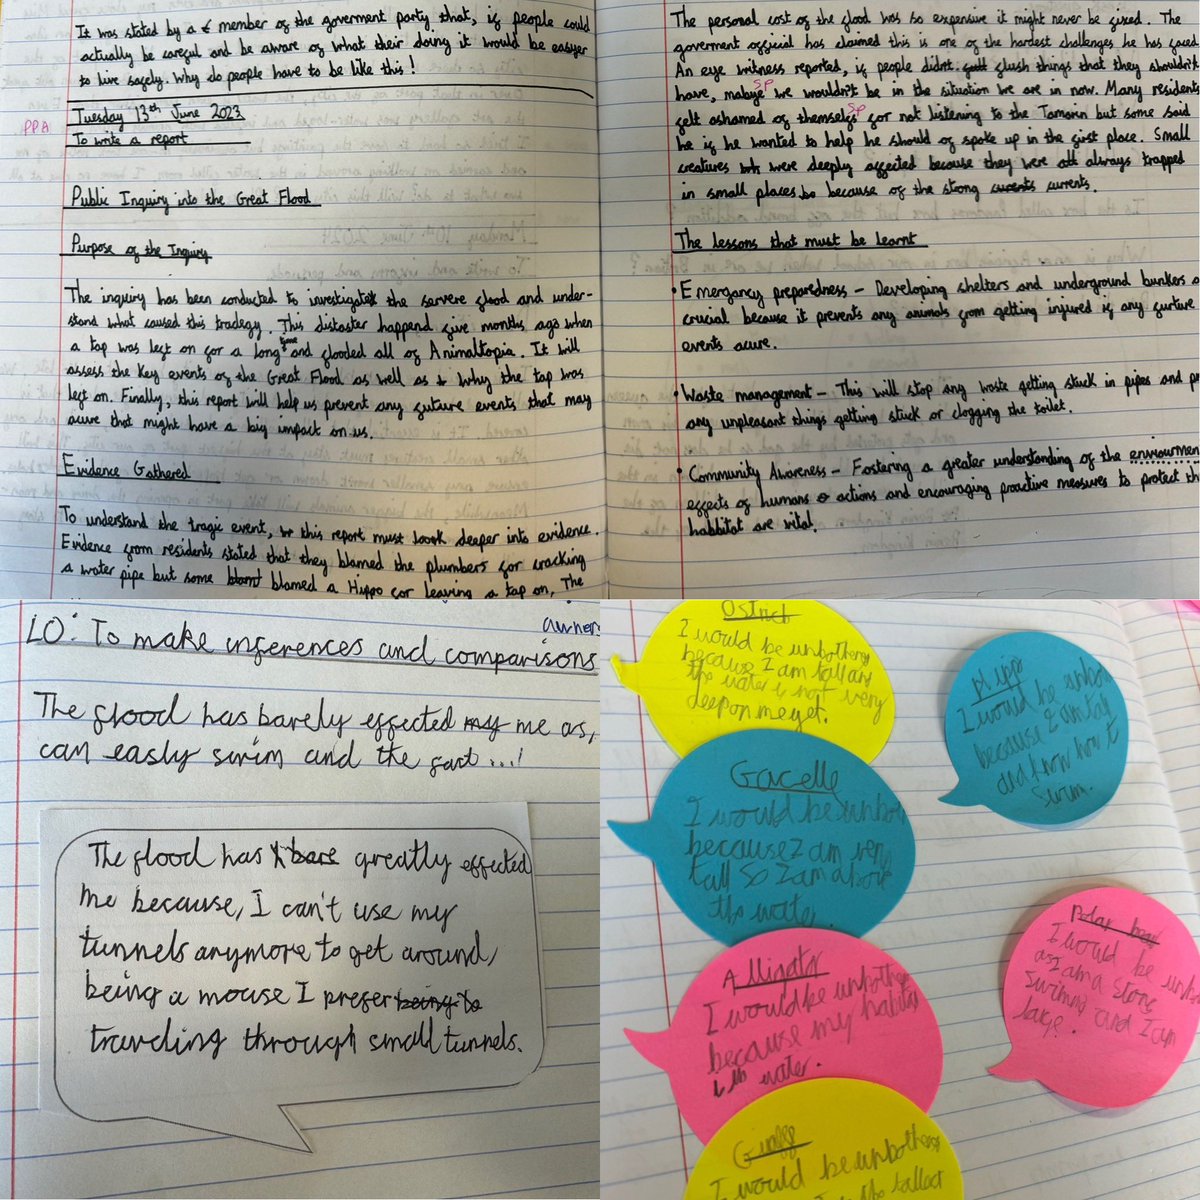 It was stated by a member of the goverment party that, if people could
actually be careful and be aware of what their doing it would be easyer
to live safely. Why do people have to be like this!
Tuesday 13th June 2023
PPA
To write a report
Public Inquiry into the Great Flood
Purpose of the Inquiry
The inquiry has been conducted to investigate the servere flood and under-
stand what caused this tradegy. This distaster happend five months ago when
a tap was left on for a long time and flooded all of Animaltopia. It will
assess the key events of the Great Flood as well as why the tap was
left on. Finally, this report will help us prevent any future events that may
acure that might have a big impact on us.
Evidence Gathered
To understand the tragic event, this report must look deeper into evidence.
Evidence from residents stated that they blamed the plumbers for cracking
a water pipe but some blamed a Hippo for leaving a tap on, The
The personal cost of the flood was so expensive it might never be fixed. The
goverment official has claimed this is one of the hardest challenges he has faced.
An eye witness reported, if people didnt flush things that they shouldn't
sp
have, mabye we wouldn't be in the situation we are in now. Many residents
sp
felt ashamed of themselfs for not listening to the Tamarin but some said
he if he wanted to help he should of spoke up in the first place. Small
creatures were deeply affected because they were always trapped
in small places because of the strong currents.
The lessons that must be learnt
• Emergancy preparedness – Developing shelters and underground bunkers
crucial because it prevents any animals from getting injured if any furture
events acure.
• Waste management – This will stop any waste getting stuck in pipes and
any unpleasant things getting stuck or clogging the toilet.
• Community Awareness – Fostering a greater understanding of the enviourmen
effects of humans actions and encouraging proactive measures to protect th
habbitat are vital.
LO: To make inferences and comparisons
The flood has barely effected me as,
can easly swim and the fact ...!
The flood has greatly effected
me because, I can't use my
tunnels anymore to get around,
being a mouse I prefer
traveling through small tunnels.
Ostrich
I would be unbothered
because I am tall and
the water is not very
deep on me yet.
Hipp
I would be unbo
because I am tall
and know how t
swim.
Gacelle
I would be unbo
because I am very
tall so I am above
the water
Alligator
I would be unbother
because my habitat
is water.
Polar bear
I would be unb
as I am a strong
swimmer and I am
large.
Giraffe
I would be unbothere
tallest